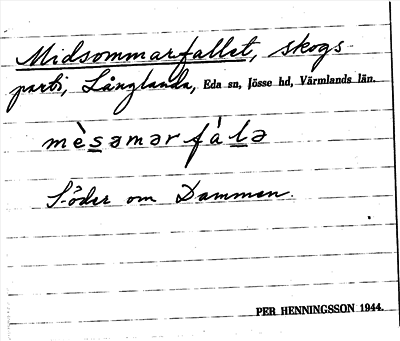 Midsommarfallet, skogs-
parti, Långlanda, Eda sn, Jösse hd, Värmlands län.
mè̱səmər fà̱lə
Söder om Dammen.
PER HENNINGSSON 1944.